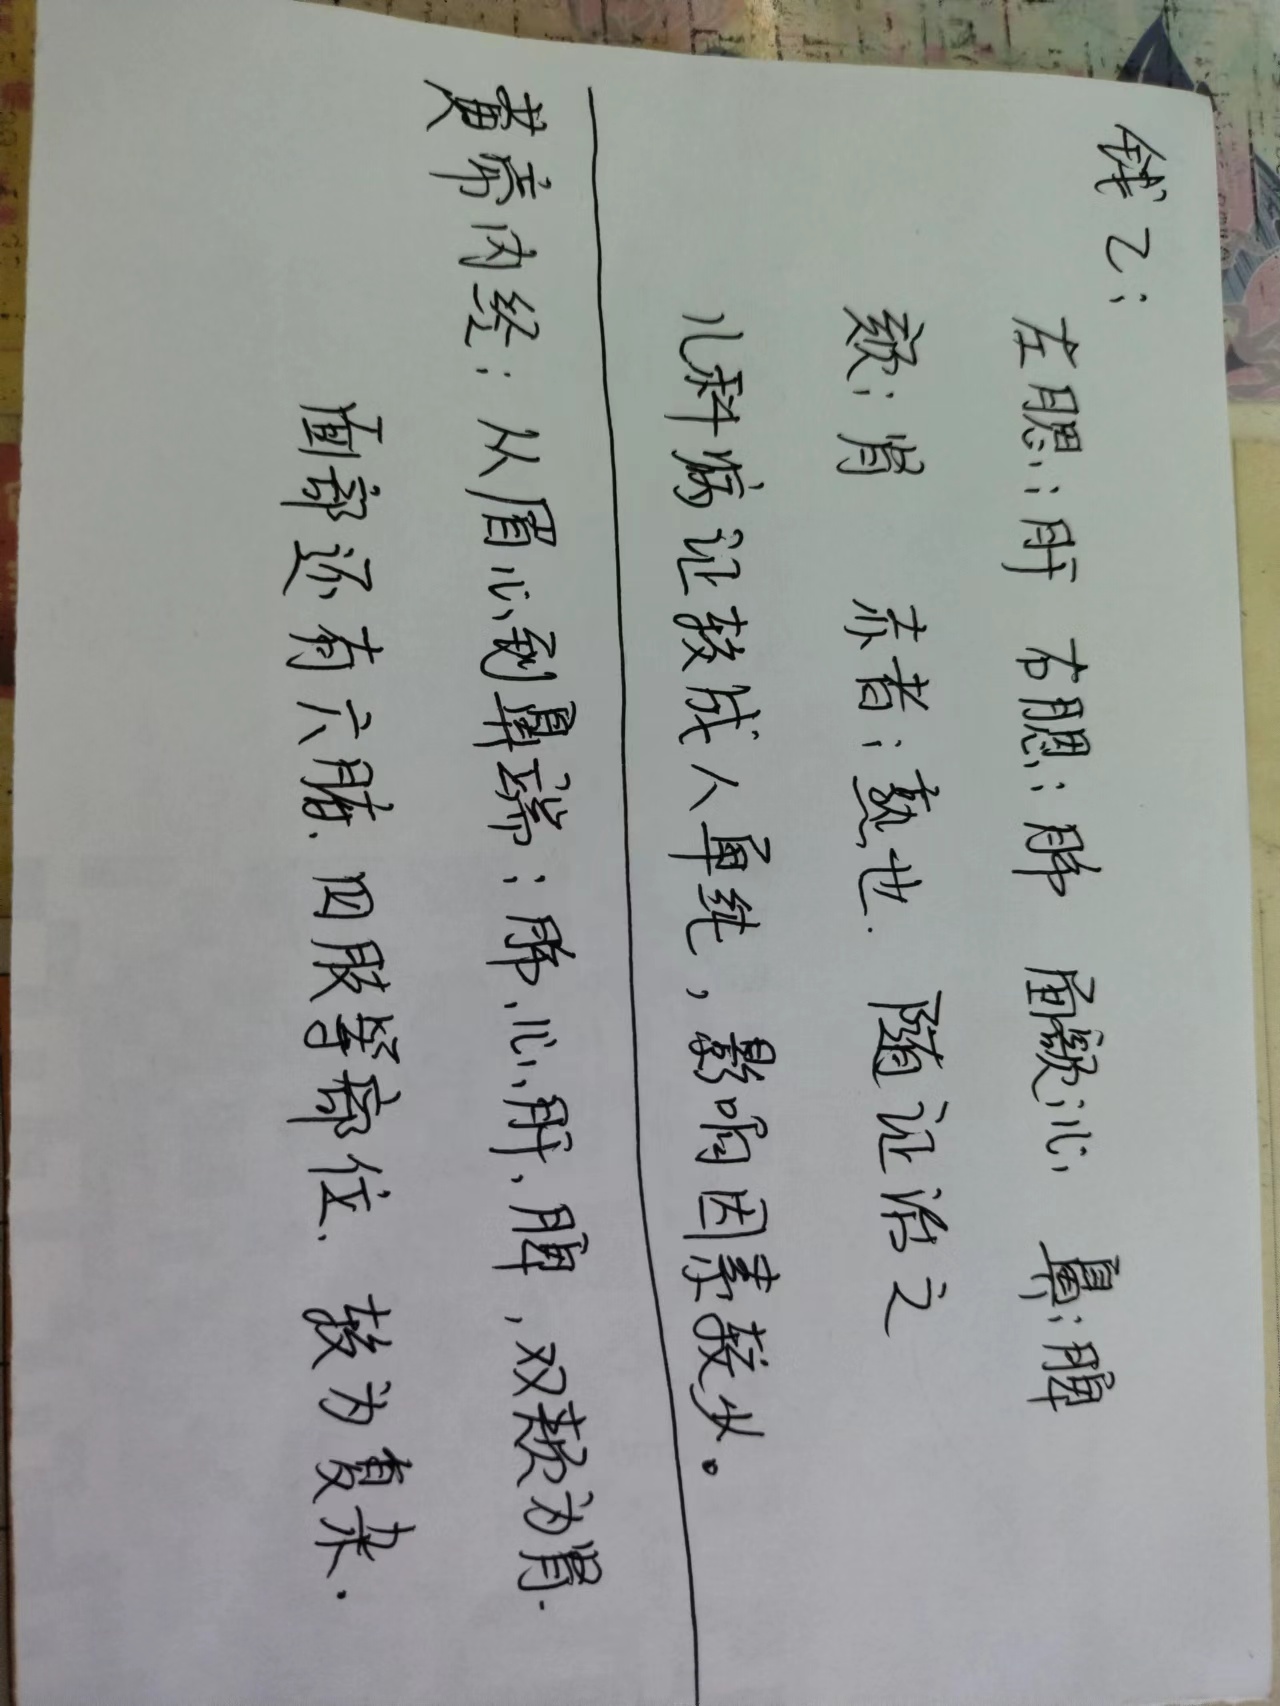 钱乙：
左腮：肝 右腮：肺 面额心 鼻：脾
颏：肾 赤者：热也. 随证治之
儿科病证较成人单纯，影响因素较少。
黄帝内经：从眉心到鼻端：肺、心、肝、脾，双颊为肾.
面部还有六腑、四肢等部位、较为复杂.